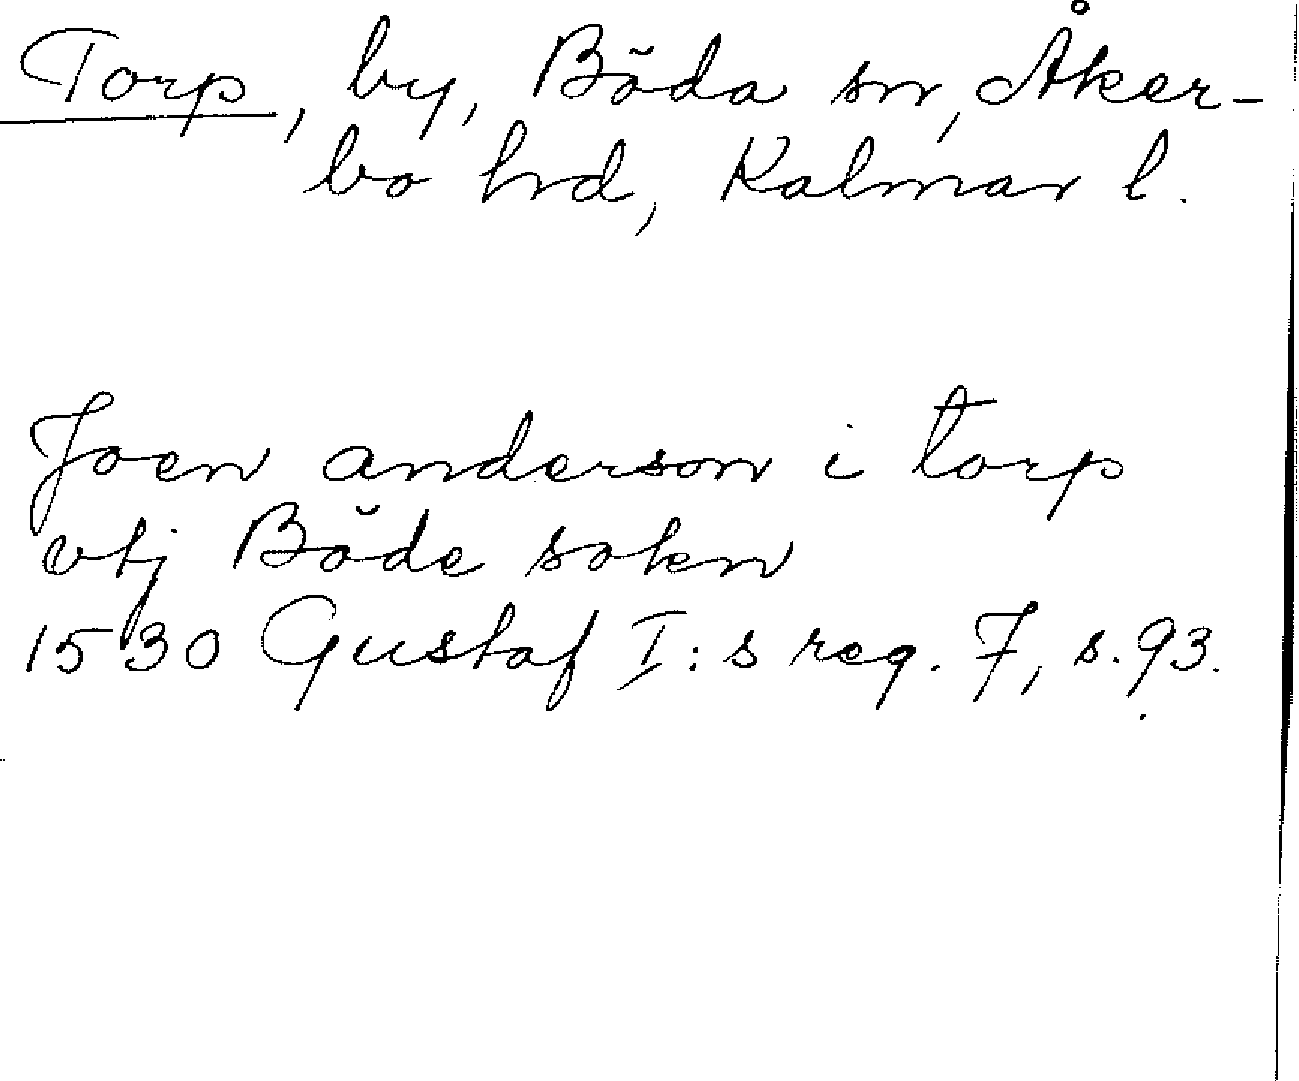 Torp, by, Böda sn, Åker-
bo hrd, Kalmar l.
Joen anderson i torp
vtj Böde sokn
1530 Gustaf I:s reg. 7, s. 93.